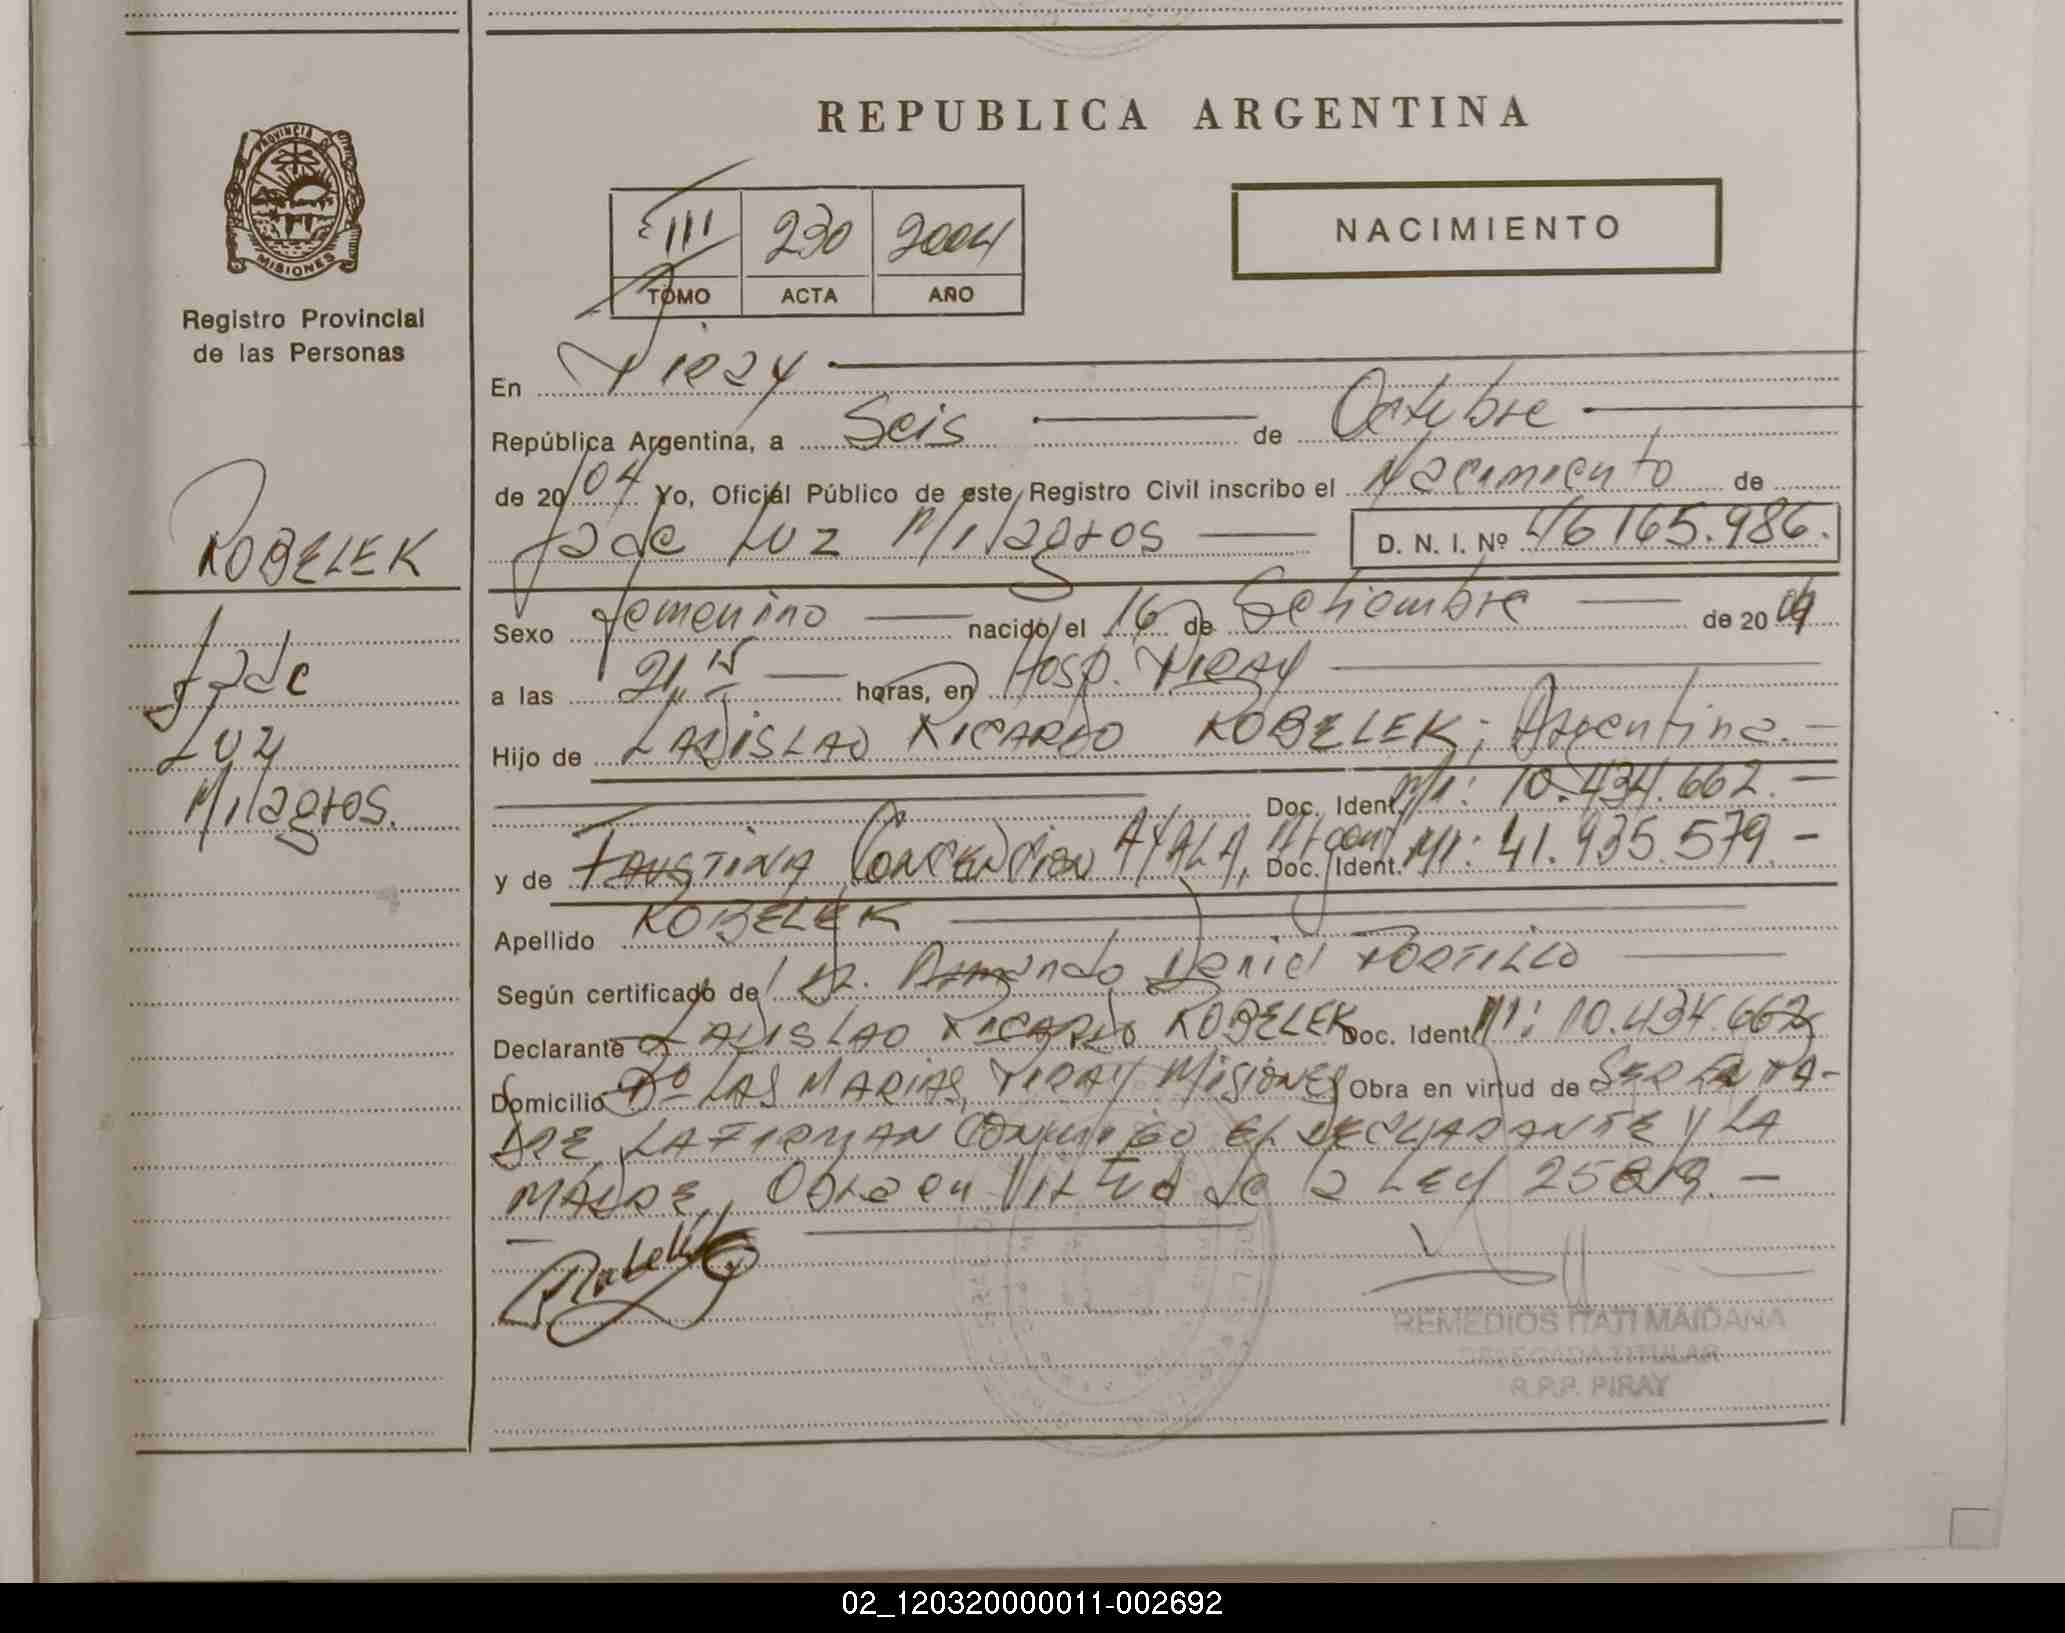 REPUBLICA ARGENTINA
PROVINCIA DE
MISIONES
Registro Provincial
de las Personas
III 230 2004
TOMO ACTA AÑO
NACIMIENTO
En Piray
República Argentina, a Seis de Octubre
de 20 04 Yo, Oficial Público de este Registro Civil inscribo el Nacimiento de
Jade Luz Milagros D. N. I. Nº 46165.986.
ROBELEK
Jade
Luz
Milagros.
Sexo femenino nacido el 16 de Setiembre de 20 04
a las 21,15 horas, en Hosp. PIRAY
Hijo de LADISLAO RICARDO ROBELEK; Argentina.-
Doc. Ident. MI: 10.434.662.-
y de FAUSTINA CONCEPCION AYALA, Argent Doc. Ident. MI: 41.935.579.-
Apellido ROBELEK
Según certificado de Dr. Armando Daniel PORTILLO
Declarante LADISLAO RICARDO ROBELEK Doc. Ident. MI: 10.434.662
Domicilio Bº LAS MARIAS, PIRAY Misiones Obra en virtud de SER EL PA-
DRE LA FIRMAN CONMIGO EL DECLARANTE Y LA
MADRE, Obra en Virtud de la LEY 25819.-
Robelek
REMEDIOS ITATI MAIDANA
DELEGADA TITULAR
R.P.P. PIRAY
02_120320000011-002692